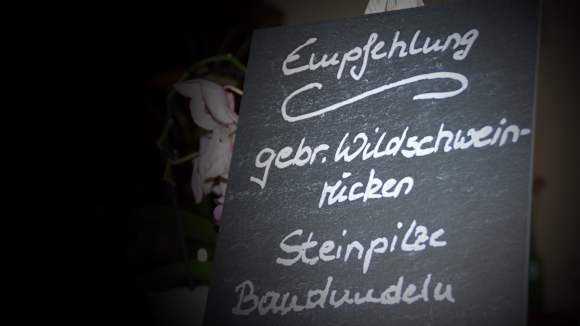 Empfehlung
gebr. Wildschwein-
rücken
Steinpilze
Bandnudeln